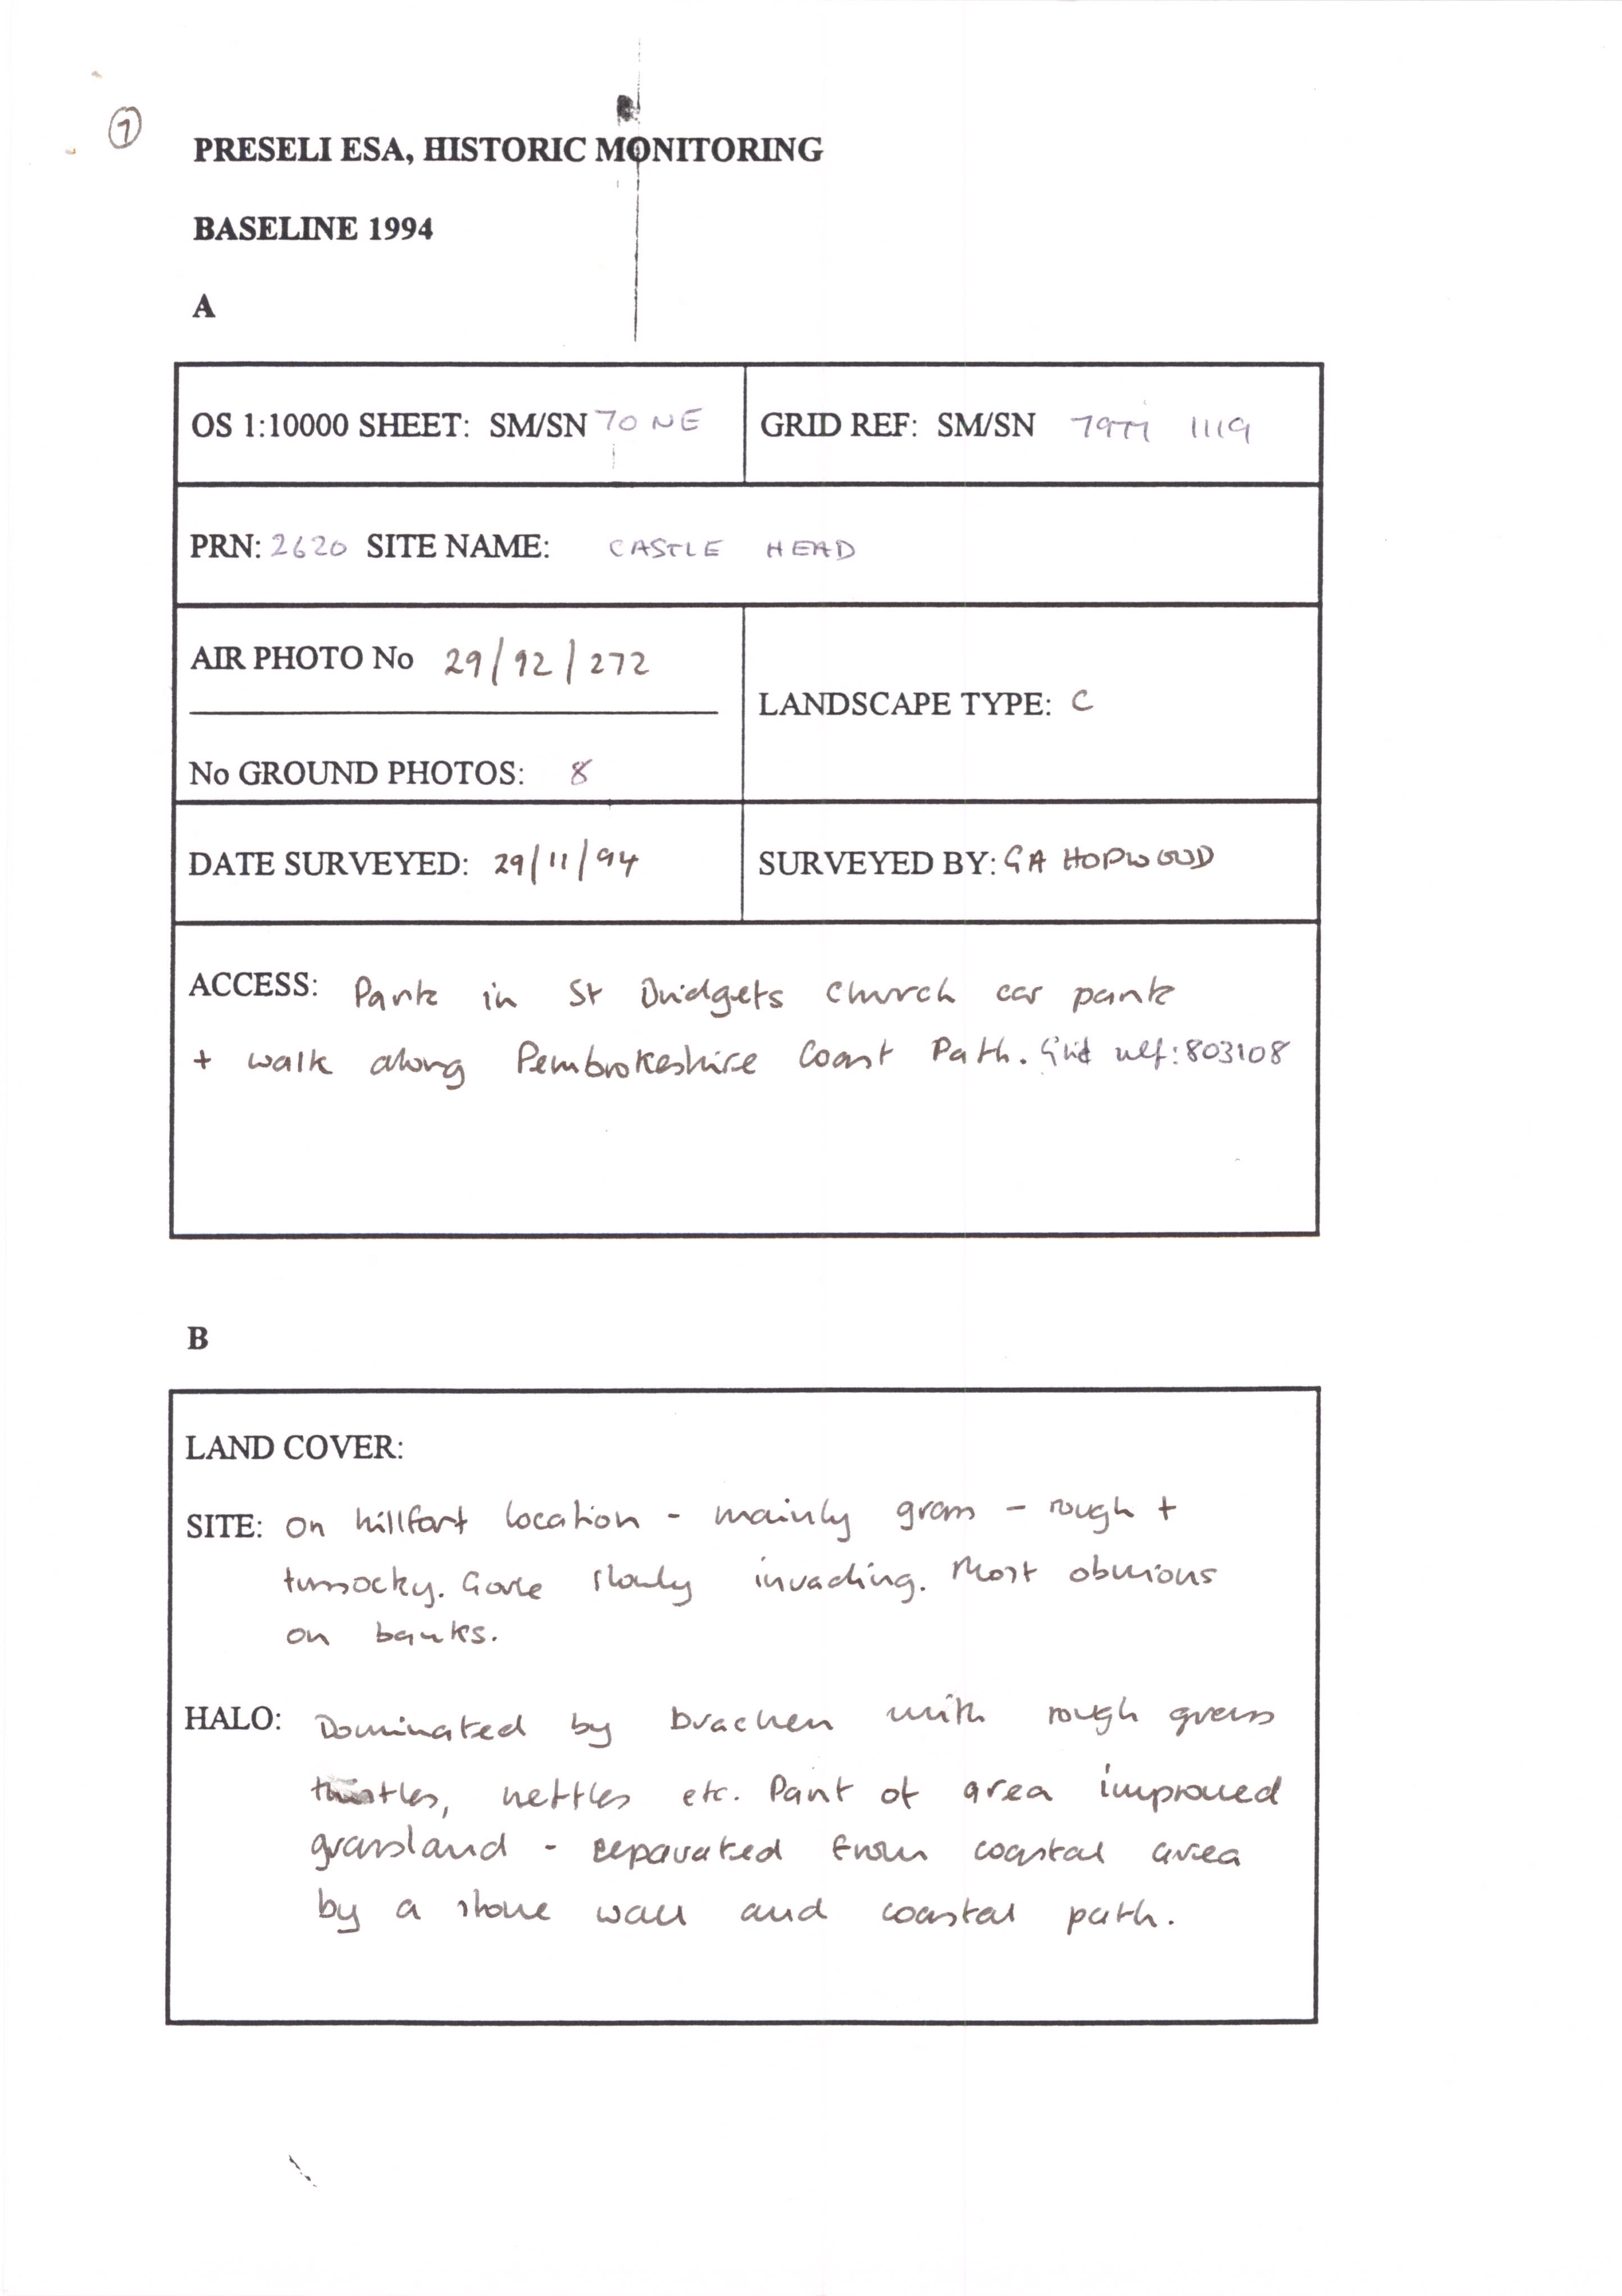 7
PRESELI ESA, HISTORIC MONITORING
BASELINE 1994
A
OS 1:10000 SHEET: SM/SN 70 NE
GRID REF: SM/SN 7977 1119
PRN: 2620 SITE NAME: CASTLE HEAD
AIR PHOTO No 29/92/272
LANDSCAPE TYPE: C
No GROUND PHOTOS: 8
DATE SURVEYED: 29/11/94
SURVEYED BY: GA HOPWOOD
ACCESS: Park in St Bridgets church car park
+ walk along Pembrokeshire Coast Path. Grid ref: 803108
B
LAND COVER:
SITE: On hillfort location - mainly grass - rough +
tussocky. Gorse slowly invading. Most obvious
on banks.
HALO: Dominated by bracken with rough grass
thistles, nettles etc. Part of area improved
grassland - separated from coastal area
by a stone wall and coastal path.